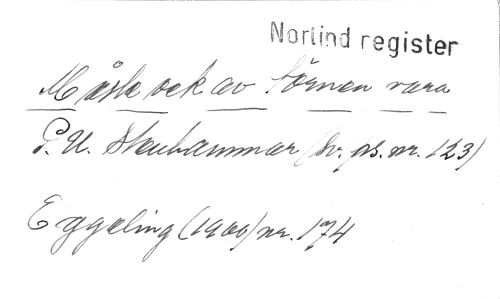 Norlind register
Måste ock av törnen vara
P. U. Stenhammar (Sv. ps. nr. 123)
Eggeling (1900) nr. 174